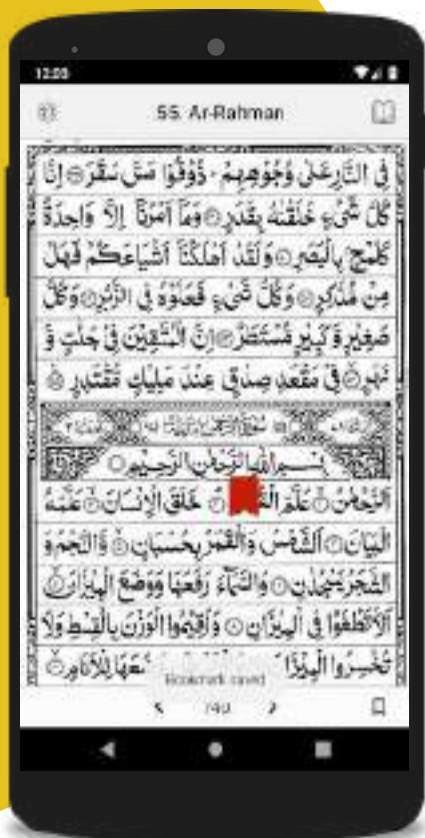 12:00
55. Ar-Rahman
فِي النَّارِ عَلٰى وُجُوْهِهِمْ ؕ ذُوْقُوْا مَسَّ سَقَرَ ۝ اِنَّا
كُلَّ شَيْءٍ خَلَقْنٰهُ بِقَدَرٍ ۝ وَمَاۤ اَمْرُنَاۤ اِلَّا وَاحِدَةٌ
كَلَمْحٍۢ بِالْبَصَرِ ۝ وَلَقَدْ اَهْلَكْنَاۤ اَشْيَاعَكُمْ فَهَلْ
مِنْ مُّدَّكِرٍ ۝ وَكُلُّ شَيْءٍ فَعَلُوْهُ فِي الزُّبُرِ ۝ وَكُلُّ
صَغِيْرٍ وَّكَبِيْرٍ مُّسْتَطَرٌ ۝ اِنَّ الْمُتَّقِيْنَ فِيْ جَنّٰتٍ وَّ
نَهَرٍ ۝ فِيْ مَقْعَدِ صِدْقٍ عِنْدَ مَلِيْكٍ مُّقْتَدِرٍ ۝
بِسْمِ اللّٰهِ الرَّحْمٰنِ الرَّحِيْمِ ۝
اَلرَّحْمٰنُ ۝ عَلَّمَ ۝ خَلَقَ الْاِنْسَانَ ۝ عَلَّمَهُ
الْبَيَانَ ۝ اَلشَّمْسُ وَالْقَمَرُ بِحُسْبَانٍ ۝ وَّالنَّجْمُ وَ
الشَّجَرُ يَسْجُدٰنِ ۝ وَالسَّمَآءَ رَفَعَهَا وَوَضَعَ الْمِيْزَانَ ۝
اَلَّا تَطْغَوْا فِي الْمِيْزَانِ ۝ وَاَقِيْمُوا الْوَزْنَ بِالْقِسْطِ وَلَا
تُخْسِرُوا
Bookmark saved